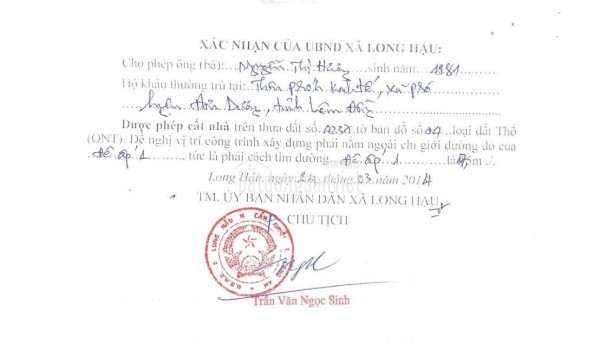 XÁC NHẬN CỦA UBND XÃ LONG HẬU:
Cho phép ông (bà):...Nguyễn Thị Hường...sinh năm..1981
Hộ khẩu thường trú tại:...Thôn xã
huyện Đơn Dương, tỉnh Lâm Đồng
Được phép cất nhà trên thưa đất số.1238.tờ bản đồ số 04..loại đất Thổ
(ONT). Đề nghị vị trí công trình xây dựng phải nằm ngoài chỉ giới đường do của
Đê ấp 1............ tức là phải cách tim đường....Đê ấp 1........là m ./.
Long Hậu, ngày 24 tháng.03.năm 2014
TM. ỦY BAN NHÂN DÂN XÃ LONG HẬU
CHỦ TỊCH
Trần Văn Ngọc Sinh
batdongsanviet